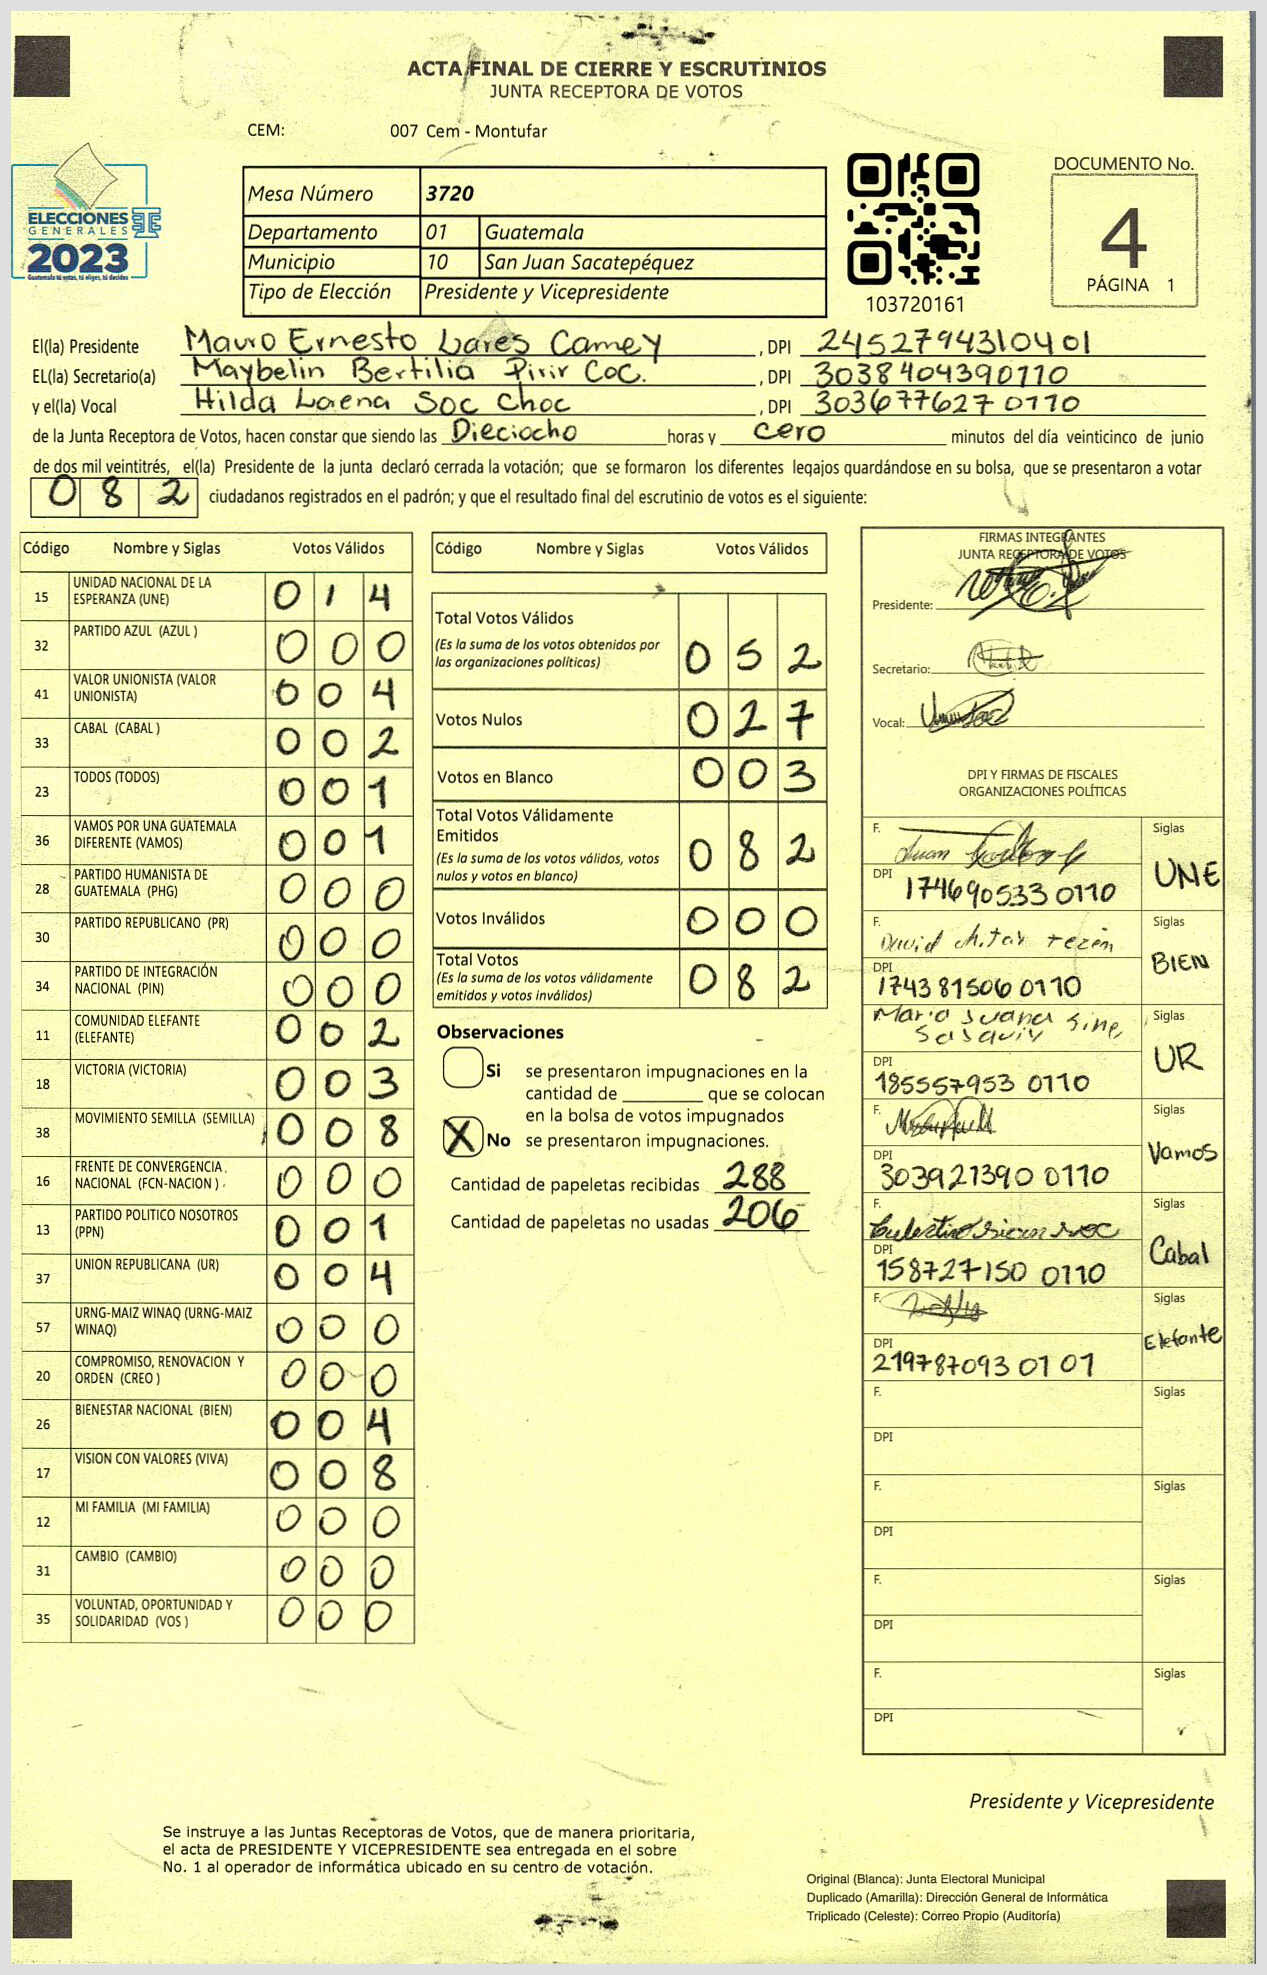 ACTA FINAL DE CIERRE Y ESCRUTINIOS
JUNTA RECEPTORA DE VOTOS
CEM: 007 Cem - Montufar
ELECCIONES
GENERALES
2023
Guatemala tú votas, tú eliges, tú decides
Mesa Número 3720
Departamento 01 Guatemala
Municipio 10 San Juan Sacatepéquez
Tipo de Elección Presidente y Vicepresidente
103720161
DOCUMENTO No.
4
PÁGINA 1
El(la) Presidente Mauro Ernesto Lares Camey , DPI 2452794310401
EL(la) Secretario(a) Maybelin Bertilia Pirir Coc. , DPI 3038404390110
y el(la) Vocal Hilda Lorena Soc Choc , DPI 3036776270110
de la Junta Receptora de Votos, hacen constar que siendo las Dieciocho horas y cero minutos del día veinticinco de junio
de dos mil veintitrés, el(la) Presidente de la junta declaró cerrada la votación; que se formaron los diferentes legajos quardándose en su bolsa, que se presentaron a votar
082 ciudadanos registrados en el padrón; y que el resultado final del escrutinio de votos es el siguiente:
Código Nombre y Siglas Votos Válidos
15 UNIDAD NACIONAL DE LA ESPERANZA (UNE) 014
32 PARTIDO AZUL (AZUL ) 000
41 VALOR UNIONISTA (VALOR UNIONISTA) 004
33 CABAL (CABAL ) 002
23 TODOS (TODOS) 001
36 VAMOS POR UNA GUATEMALA DIFERENTE (VAMOS) 001
28 PARTIDO HUMANISTA DE GUATEMALA (PHG) 000
30 PARTIDO REPUBLICANO (PR) 000
34 PARTIDO DE INTEGRACIÓN NACIONAL (PIN) 000
11 COMUNIDAD ELEFANTE (ELEFANTE) 002
18 VICTORIA (VICTORIA) 003
38 MOVIMIENTO SEMILLA (SEMILLA) 008
16 FRENTE DE CONVERGENCIA NACIONAL (FCN-NACION ) 000
13 PARTIDO POLITICO NOSOTROS (PPN) 001
37 UNION REPUBLICANA (UR) 004
57 URNG-MAIZ WINAQ (URNG-MAIZ WINAQ) 000
20 COMPROMISO, RENOVACION Y ORDEN (CREO ) 000
26 BIENESTAR NACIONAL (BIEN) 004
17 VISION CON VALORES (VIVA) 008
12 MI FAMILIA (MI FAMILIA) 000
31 CAMBIO (CAMBIO) 000
35 VOLUNTAD, OPORTUNIDAD Y SOLIDARIDAD (VOS ) 000
Código Nombre y Siglas Votos Válidos
Total Votos Válidos 052
(Es la suma de los votos obtenidos por
las organizaciones políticas)
Votos Nulos 027
Votos en Blanco 003
Total Votos Válidamente
Emitidos 082
(Es la suma de los votos válidos, votos
nulos y votos en blanco)
Votos Inválidos 000
Total Votos 082
(Es la suma de los votos válidamente
emitidos y votos inválidos)
Observaciones
Si se presentaron impugnaciones en la
cantidad de ________ que se colocan
en la bolsa de votos impugnados
X No se presentaron impugnaciones.
Cantidad de papeletas recibidas 288
Cantidad de papeletas no usadas 206
FIRMAS INTEGRANTES
JUNTA RECEPTORA DE VOTOS
Presidente:
Secretario:
Vocal:
DPI Y FIRMAS DE FISCALES
ORGANIZACIONES POLÍTICAS
F. Juan Siglas
DPI 1746905330110 UNE
F. David Siglas
DPI 1743815060110 BIEN
Maria Juana Siglas
DPI 1855579530110 UR
F. Siglas
DPI 3039213900110 Vamos
F. Siglas
DPI 1587271500110 Cabal
F. Siglas
DPI 2197870930101 Elefante
F. Siglas
DPI
F. Siglas
DPI
F. Siglas
DPI
F. Siglas
DPI
Presidente y Vicepresidente
Se instruye a las Juntas Receptoras de Votos, que de manera prioritaria,
el acta de PRESIDENTE Y VICEPRESIDENTE sea entregada en el sobre
No. 1 al operador de informática ubicado en su centro de votación.
Original (Blanca): Junta Electoral Municipal
Duplicado (Amarilla): Dirección General de Informática
Triplicado (Celeste): Correo Propio (Auditoría)